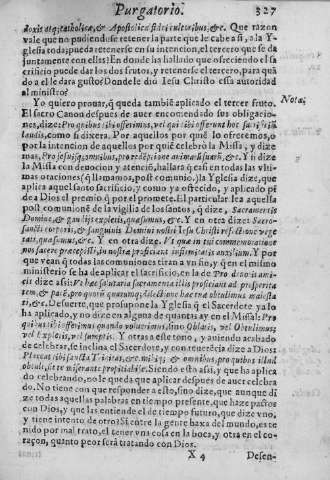 Purgatorio. 327
doxis atq; catholicæ, & Apostolicæ fidei cultoribus, &c. Que razon
vale que no pudiendise retener la parte que le cabe a si, a la Y-
glesia toda; pueda retenerse con su intencion, el tercero que se da
juntamente con ellas? En donde ha hallado que ofreciendo el sa
crificio puede dar los dos frutos, y retenerse el tercero, para quã
do a el le dara gusto? Donde le dió Iesu Christo essa autoridad
al ministro?
Yo quiero prouar, q̃ queda tambiẽ aplicado el tercer fruto. Nota;
El sacro Canon despues de auer encomendado sus obligacio-
nes, dize: Pro quibus tibi offerimus, vel qui tibi offerunt hoc sacrificium
laudis, como si dixera, Por aquellos por quiẽ lo ofrecemos, o
por la intencion de aquellos por quiẽ celebrò la Missa, y dize
mas, Pro se suisq; omnibus, pro redẽptione animarũ suarũ, &c. Y si dize
la Missa con deuocion y atenciõ, hallarà q̃ casi en todas las vlti-
mas oraciones (q̃ llamamos, post comunio,) la Yglesia dize, que
aplica aquel santo sacrificio, y como ya ofrecido, y aplicado pi-
de a Dios el premio q̃ por el promete. El particular lea aquella
post comunionẽ de la vigilia de los santos, q̃ dize, Sacramentis
Domine, & gaudijs expletis, quæsumus, &c. Y en otra dize: Sacro
sancti corporis, & sanguinis Domini nostri Iesu Christi refectione vege
tati, quæsumus, &c. Y en otra dize. Vt quæ in tui commemoratione
nos facere præcepisti, in nostræ proficiant infirmitatis auxilium. Y por
que vean q̃ todas las comuniones tiran a vn fin, y q̃ en el mismo
ministerio se ha de aplicar el sacrificio, en la de
dize assi: Vt hæc salutaria sacramenta illis proficiant ad prosperita
tem, & pacẽ, pro quorũ
ti, &c. De suerte, que presupone la Yglesia q̃ el Sacerdote ya lo
ha aplicado, y no dize en alguna de quantas ay en el Missal: Pro
quibus tibi offerimus quando voluerimus, sino Oblatis, vel Obtulimus
vel Expletis, vel sumptis. Y otras a este tono, y auiendo acabado
de celebrar, se inclina el Sacerdote, y con reuerẽcia dize a Dios:
Placeat tibi sancta Trinitas, &c. mihiq; & omnibus, pro quibus illud
obtuli, sit te miserante propitiabile. Siendo esto assi, y que ha aplica
do celebrando, no le queda que aplicar despues de auer celebra
do. No tiene con que responder a esto, sino dize, que aunque di
ze todas aquellas palabras en tiempo presente, que haze pactos
con Dios, y que las entiende el de tiempo futuro, que dize vno,
y tiene intento de otro: Si entre la gente baxa del mundo, es te
nido por mal trato, el tener vna cosa en la boca, y otra en el co-
raçon, quanto peor serà tratando con Dios.
X 4 Desen-